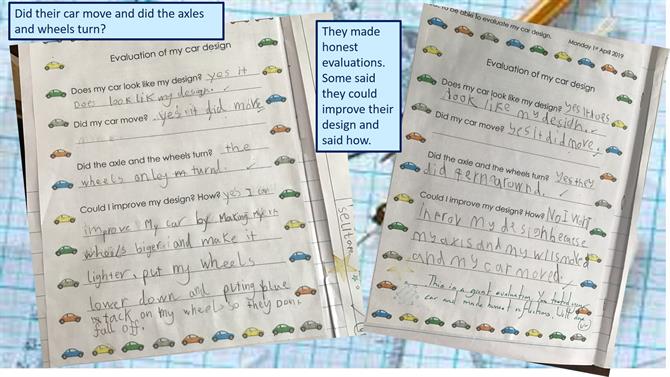 Did their car move and did the axles
and wheels turn?
Evaluation of my car design
Does my car look like my design? yes it
Does look lik my design.
Did my car move? yes it did move
Did the axle and the wheels turn? the
wheels onley turnd.
Could I improve my design? How? yes I can
improve My car by Making my
wheels bigger and make it
lighter, put my wheels
lower down and puting blue
tack on my wheels so they Dont
fall off.
They made
honest
evaluations.
Some said
they could
improve their
design and
said how.
to be able to evaluate my car design.
Monday 1st April 2019
Evaluation of my car design
Does my car look like my design? yes it does
look like my design.
Did my car move? yes it did move.
Did the axle and the wheels turn? yes they
did
Could I improve my design? How? No I
my design because
my axis and my moled
and my car moved.
This is a great evaluation. You tested your
car and made honest reflections.